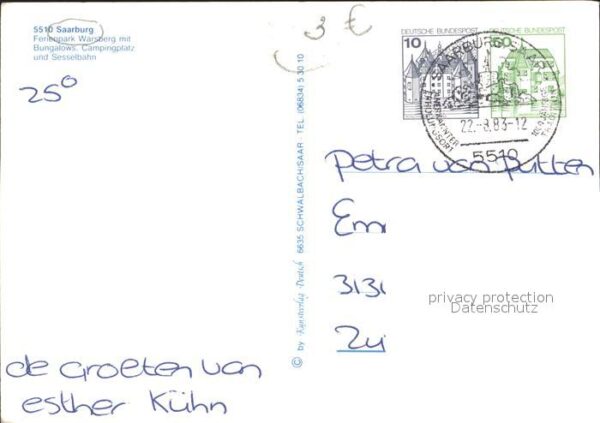 5510 Saarburg
Ferienpark Warsberg mit
Bungalows, Campingplatz
und Sesselbahn
25°
de groeten van
esther Kühn
© by Kunstverlag Peutsch 6635 SCHWALBACH/SAAR · TEL. (06834) 5 30 10
3 €
DEUTSCHE BUNDESPOST
10
DEUTSCHE BUNDESPOST
50
SAARBURG
22.-8.83-12
5510
Petra van Putten
Em
3131
Zij
privacy protection
Datenschutz